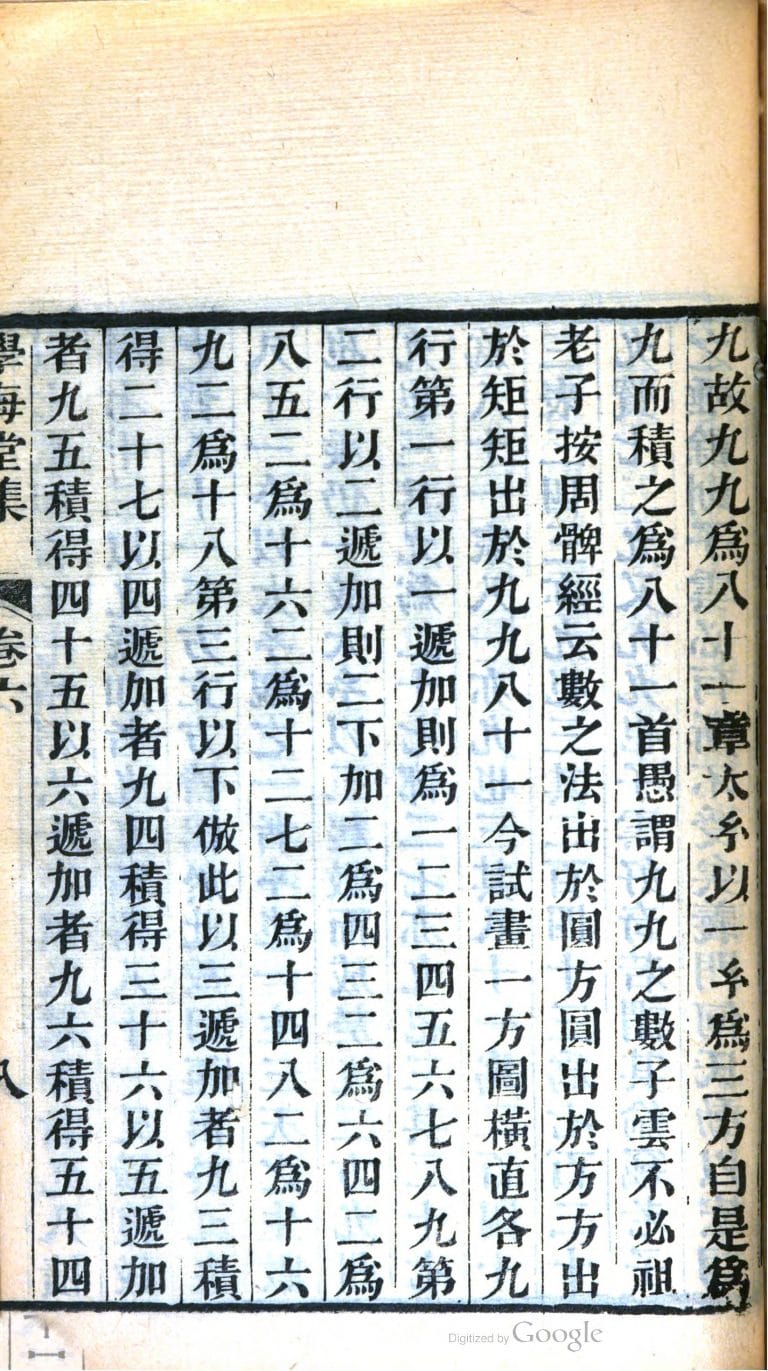 九故九九爲八十一章太𤣥以一𤣥爲三方自是爲
九而積之爲八十一首愚謂九九之數子雲不必祖
老子按周髀經云數之法出於圓方圓出於方方出
於矩矩出於九九八十一今試畫一方圖橫直各九
行第一行以一遞加則爲一二三四五六七八九第
二行以二遞加則二下加二爲四三二爲六四二爲
八五二爲十六二爲十二七二爲十四八二爲十六
九二爲十八第三行以下倣此以三遞加者九三積
得二十七以四遞加者九四積得三十六以五遞加
者九五積得四十五以六遞加者九六積得五十四
學海堂集 卷六 八
Digitized by Google